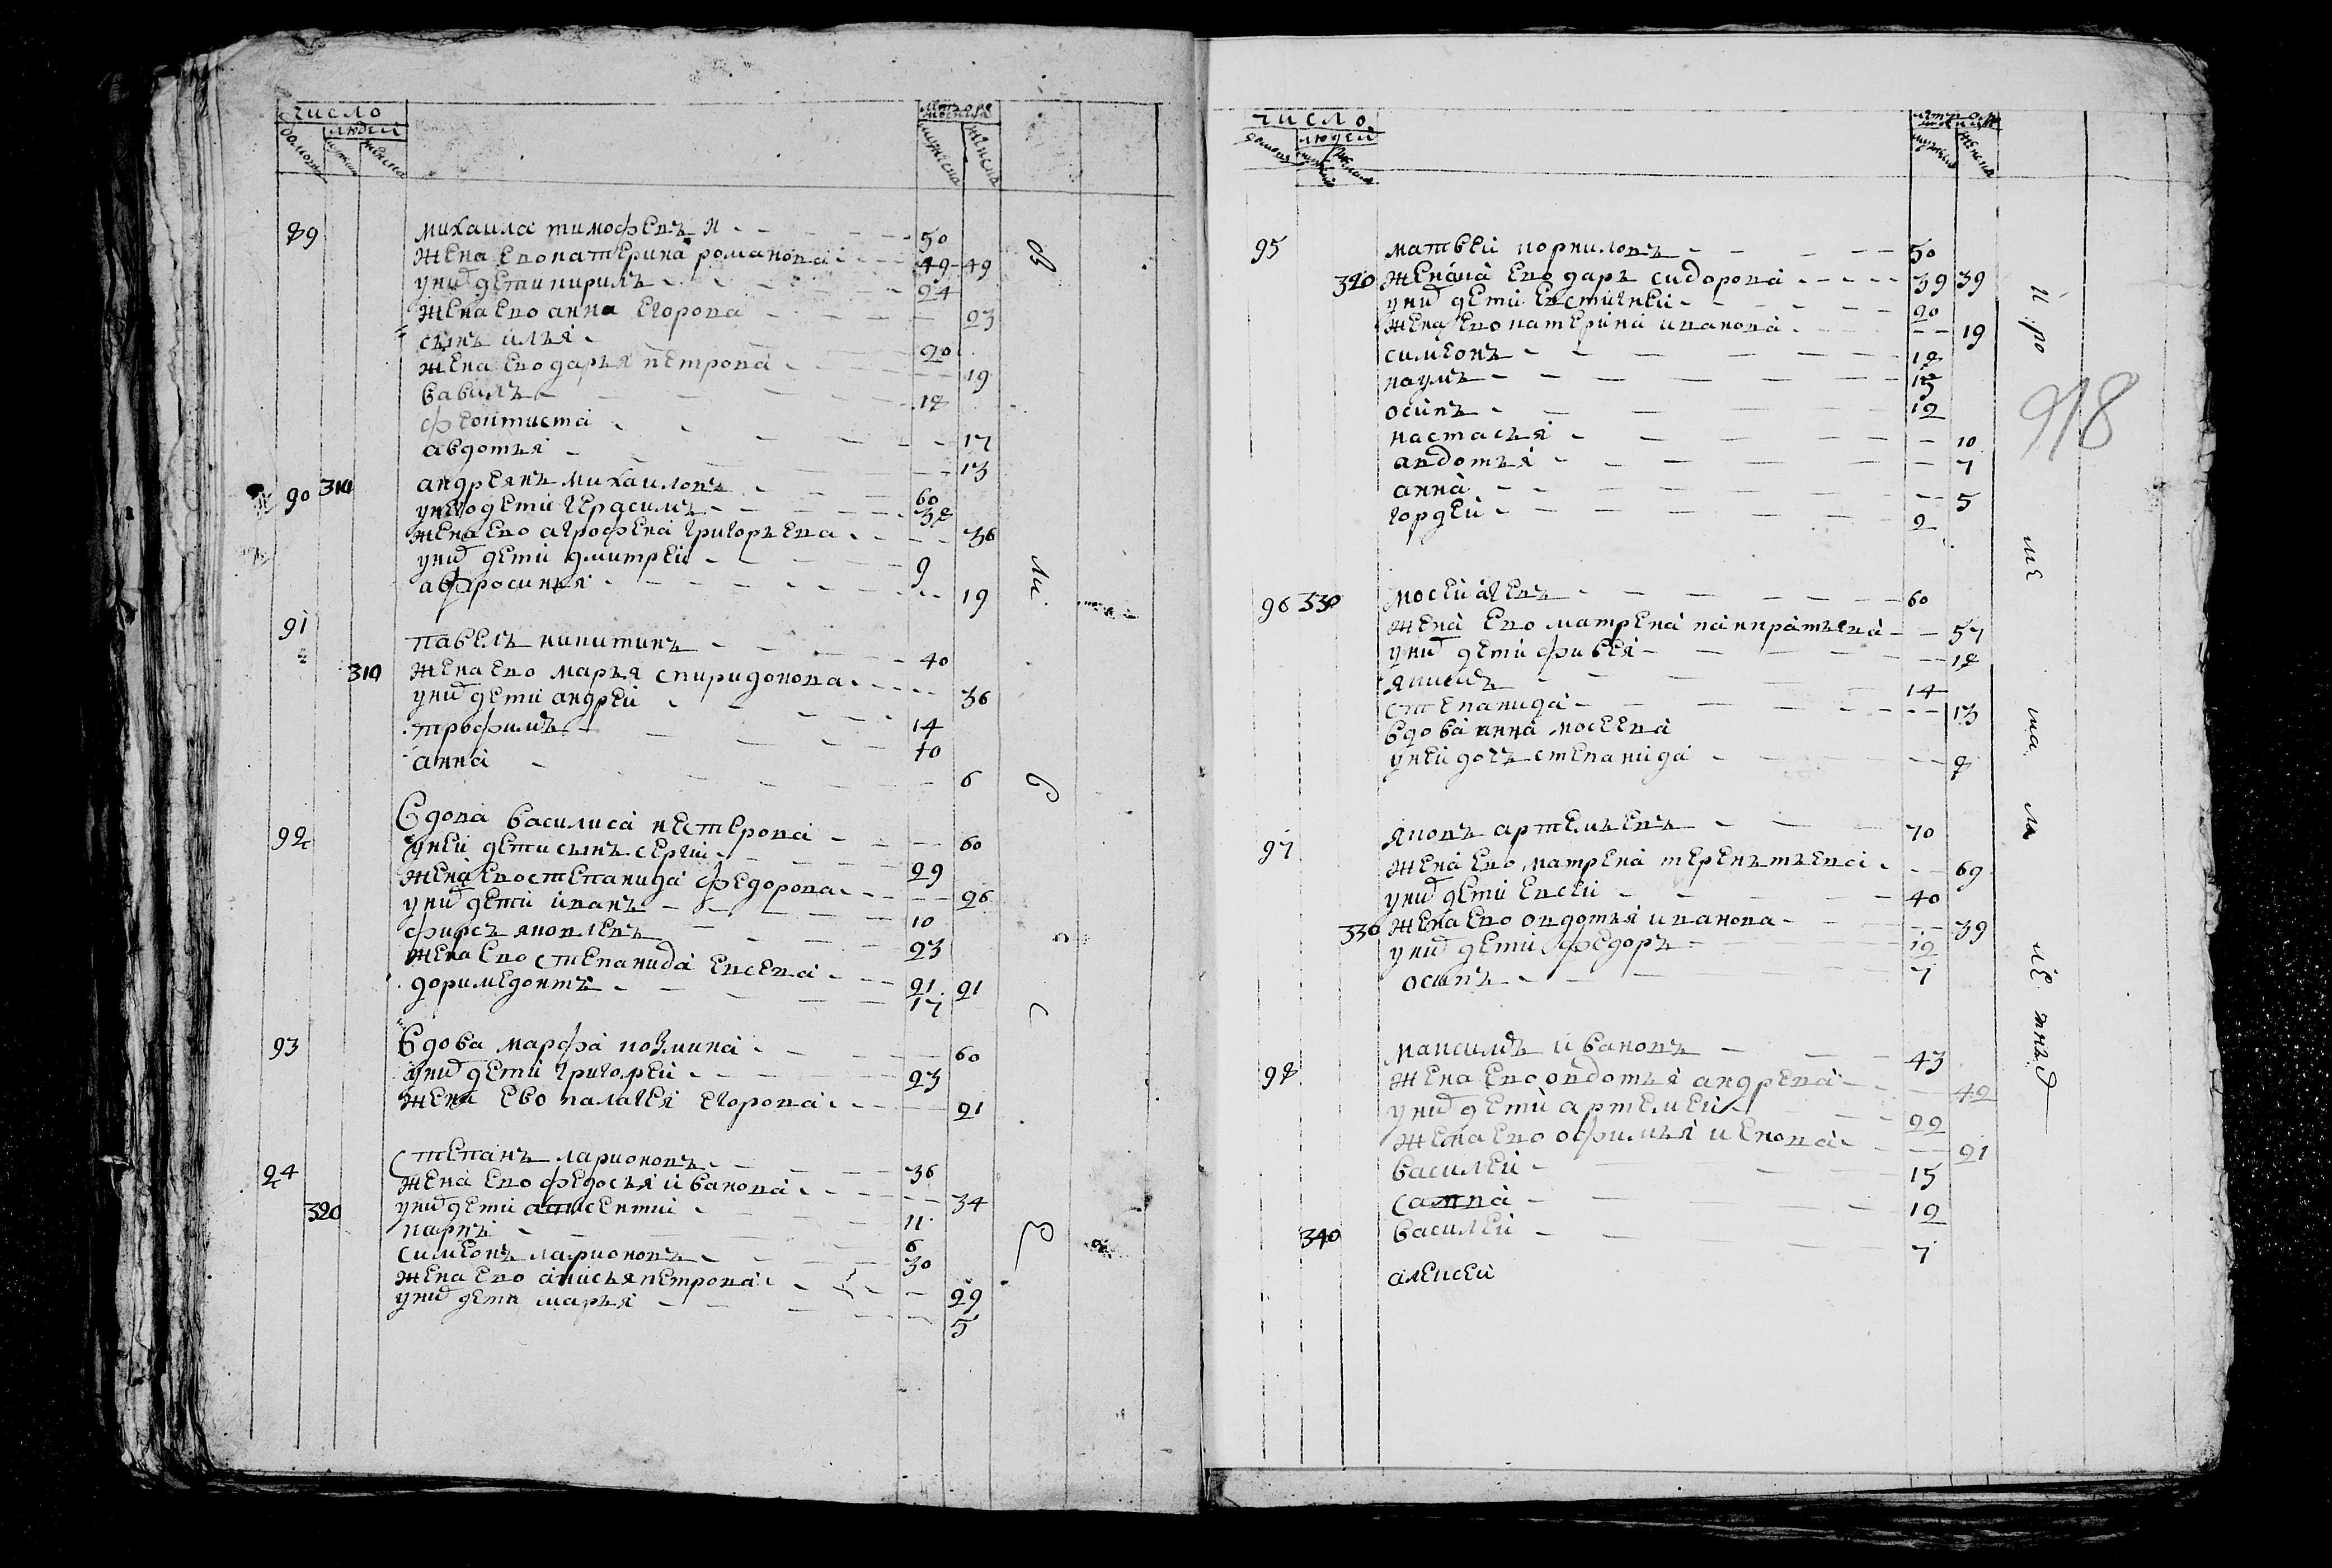 число
людей
домовъ
мужска
женска
мужеска
женска
89 михаила тимофѣевъ 50
жена ево катерина романова 49 49
у них дети кирилъ 24
жена ево анна егорова 23
сынъ илья 20
жена ево дарья петрова 19
вавилъ 18
феоктиста 17
авдотья 13
90 310 андреянъ михаиловъ 60
у него дети герасимъ 38
жена ево агрофена григорьева 36
у них дети дмитреи 9
афросинья 19
91 павелъ никитинъ 40
310 жена ево марья спиридонова 36
у них дети андреи 14
трофимъ 10
анна 6
92 вдова василиса нестерова 60
у неи дети сынъ сергии 29
жена ево степанида федорова 26
у них дети иванъ 10
фирсъ яковлевъ 23
жена ево степанида евсева 21 21
доримедонтъ 17
93 вдова марфа козмина 60
у них дети григореи 23
жена ево палагея егорова 21
94 степанъ ларионовъ 36
жена ево федосья иванова 34
320 у них дети авксентии 11
карпъ 6
симеонъ ларионовъ 30
жена ево анисья петрова 29
у них дети марья 5
ов
ли
б
с
число
людей
домовъ
женска
918
95 матвеи корниловъ 50
320 жена ево дарь сидорова 39 39
у них дети евстигнеи 20
жена ево катерина иванова 19
симеонъ 18
наумъ 15
осипъ 12
настасья 10
авдотья 7
анна 5
гордеи 2
96 330 мосеи агеевъ 60
жена ево матрена панкратьева 57
у них дети фивея 18
якимъ 14
степанида 13
вдова анна мосеева
у неи дочь степанида 8
97 яковъ артемьевъ 70
жена ево матрена терентьева 69
у них дети евсеи 40
330 жена ево овдотья иванова 39
у них дети федоръ 12
осипъ 7
98 максимъ ивановъ 43
жена ево овдотья андреева 42
у них дети артемеи 22
жена ево офимья 21
василеи 15
савва 12
340 василеи 7
алексеи